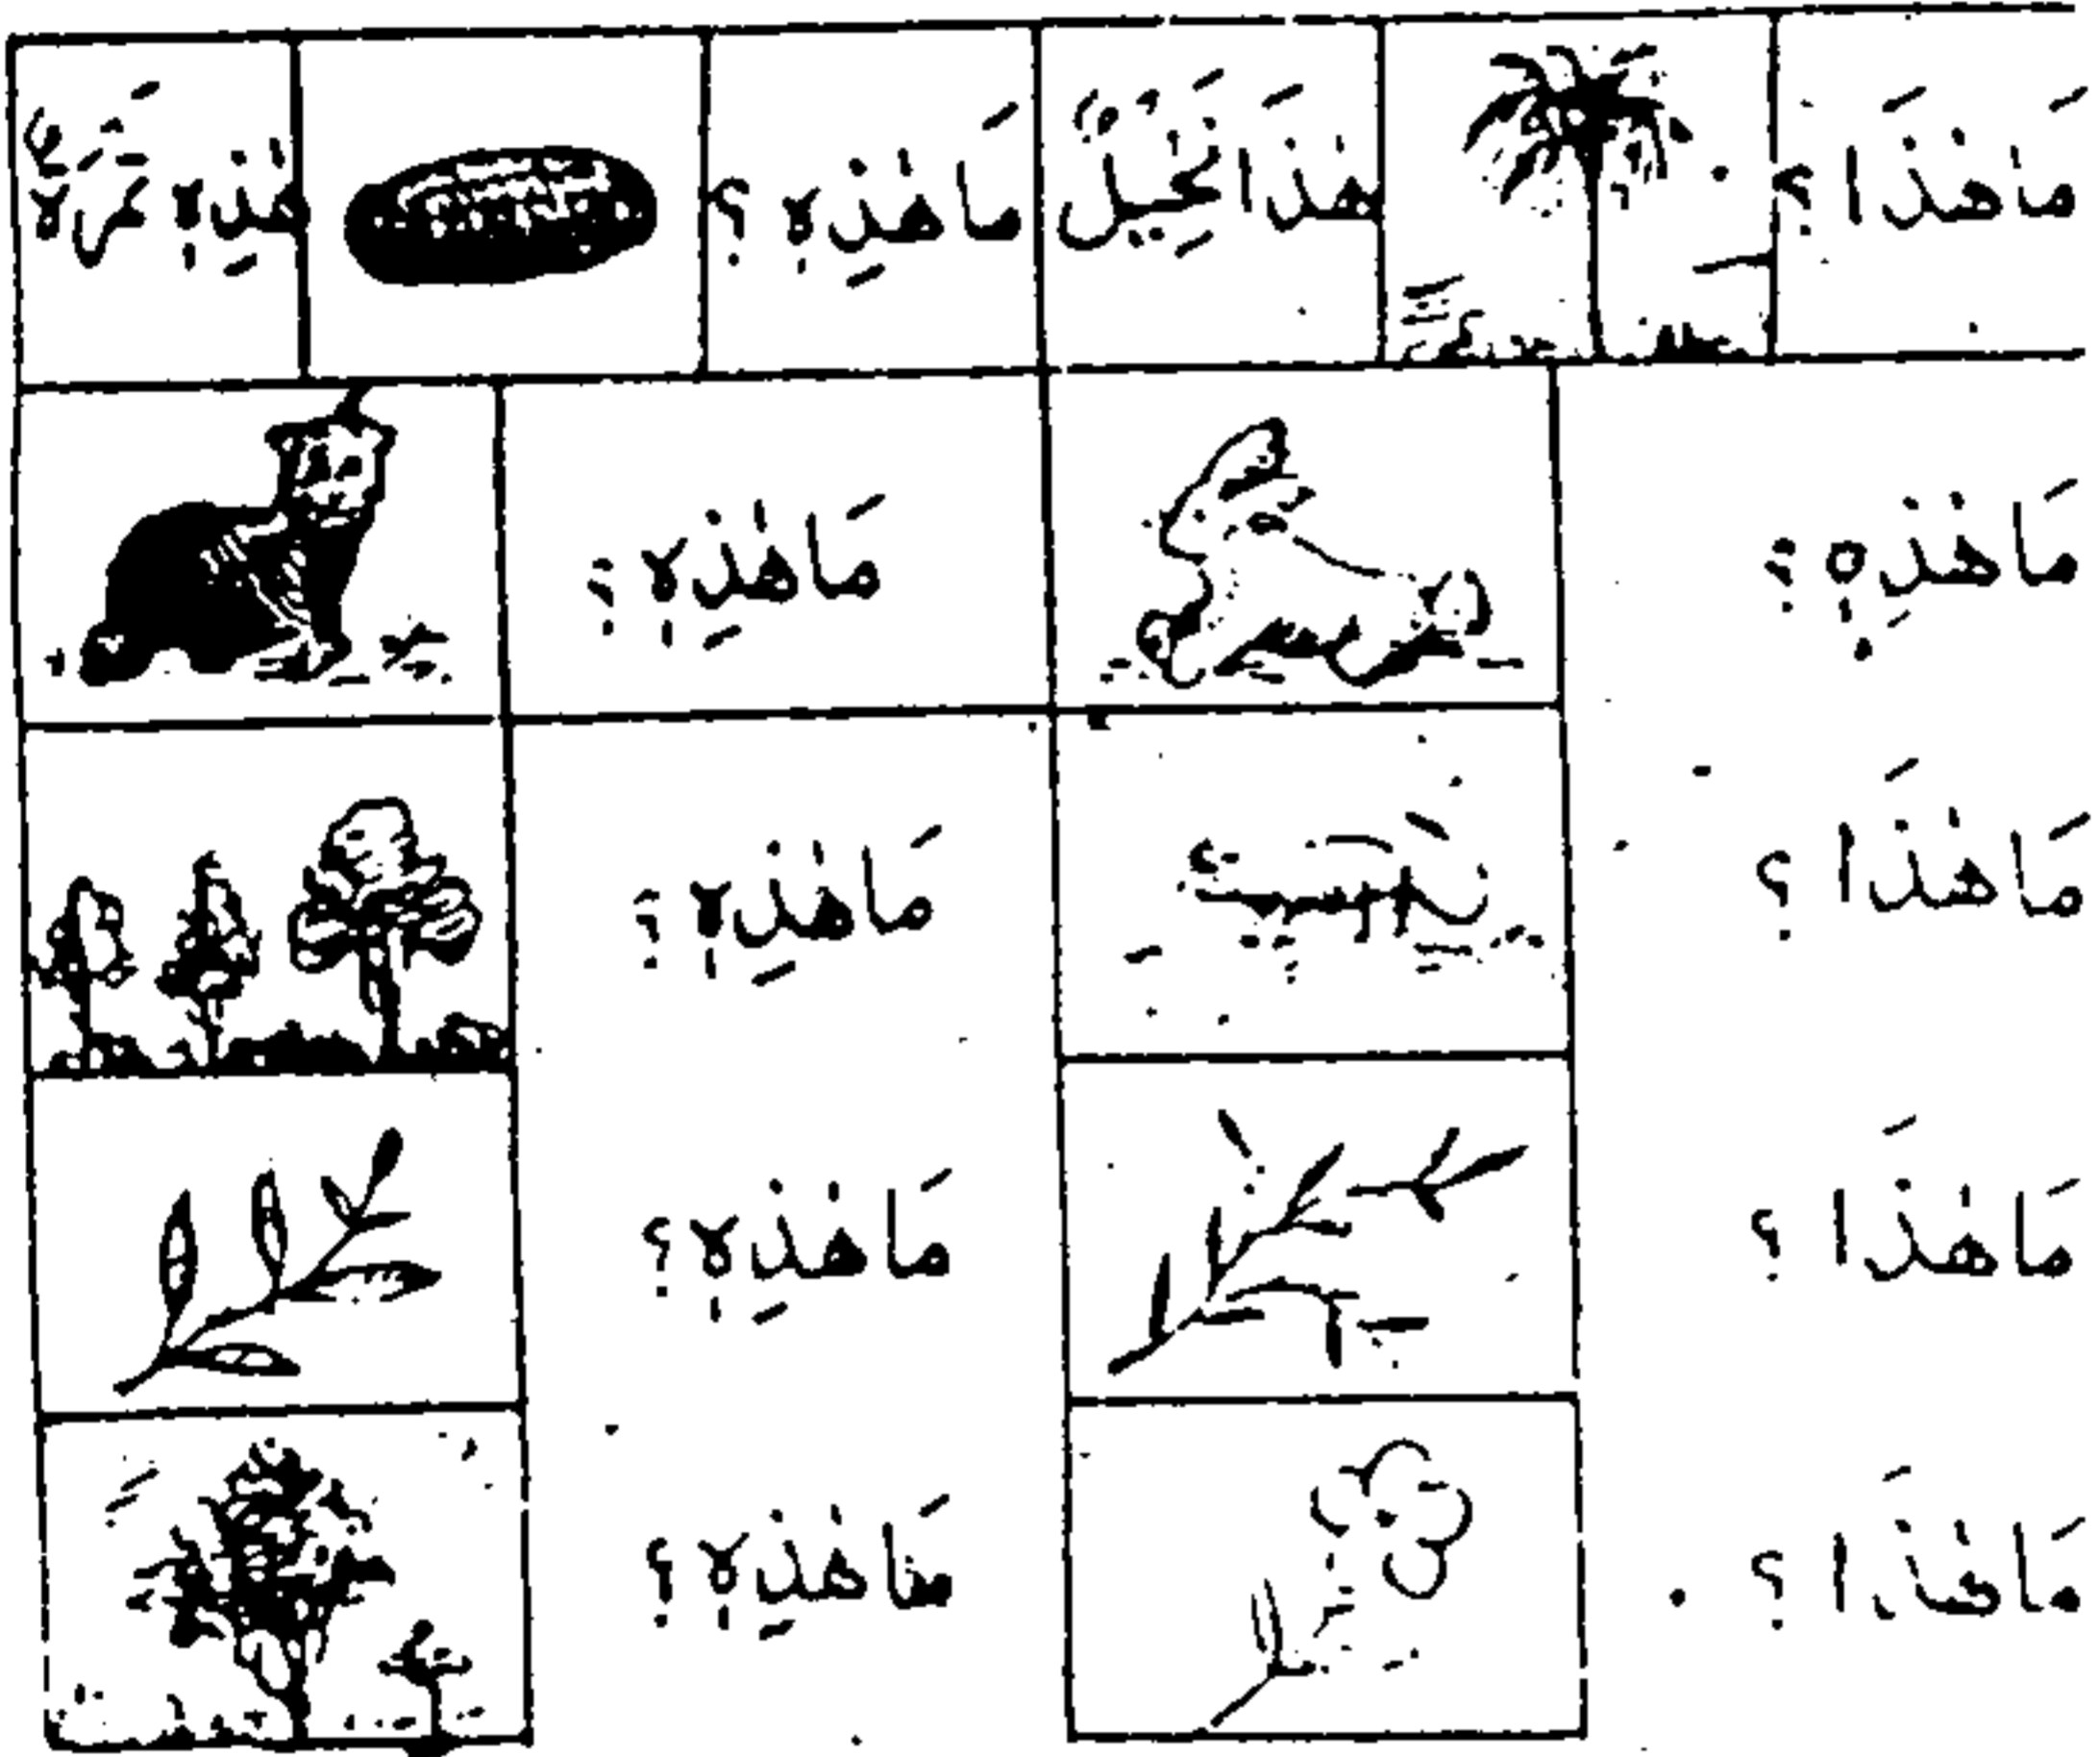 مَا هٰذَا ؟ هٰذَا نَخِيْلٌ مَا هٰذِهٖ ؟ هٰذِهٖ تَمْرَةٌ
مَا هٰذِهٖ ؟ مَا هٰذِهٖ ؟
مَا هٰذَا ؟ مَا هٰذِهٖ ؟
مَا هٰذَا ؟ مَا هٰذِهٖ ؟
مَا هٰذَا ؟ مَا هٰذِهٖ ؟